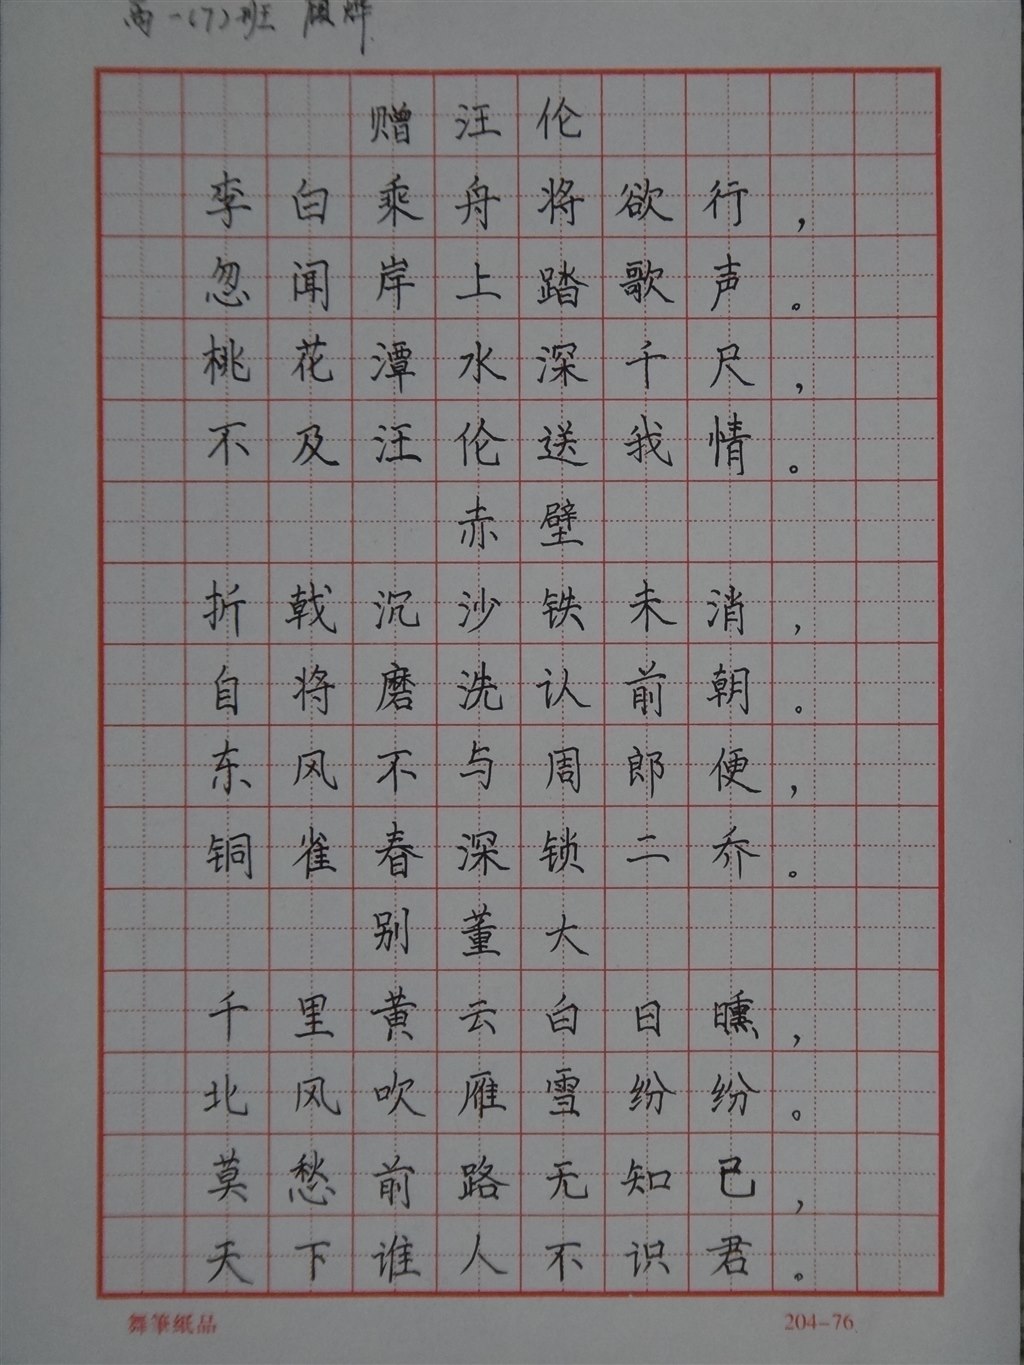 高一(7)班 顾烨
赠汪伦
李白乘舟将欲行，
忽闻岸上踏歌声。
桃花潭水深千尺，
不及汪伦送我情。
赤壁
折戟沉沙铁未消，
自将磨洗认前朝。
东风不与周郎便，
铜雀春深锁二乔。
别董大
千里黄云白日曛，
北风吹雁雪纷纷。
莫愁前路无知已，
天下谁人不识君。
舞筆紙品 204-76